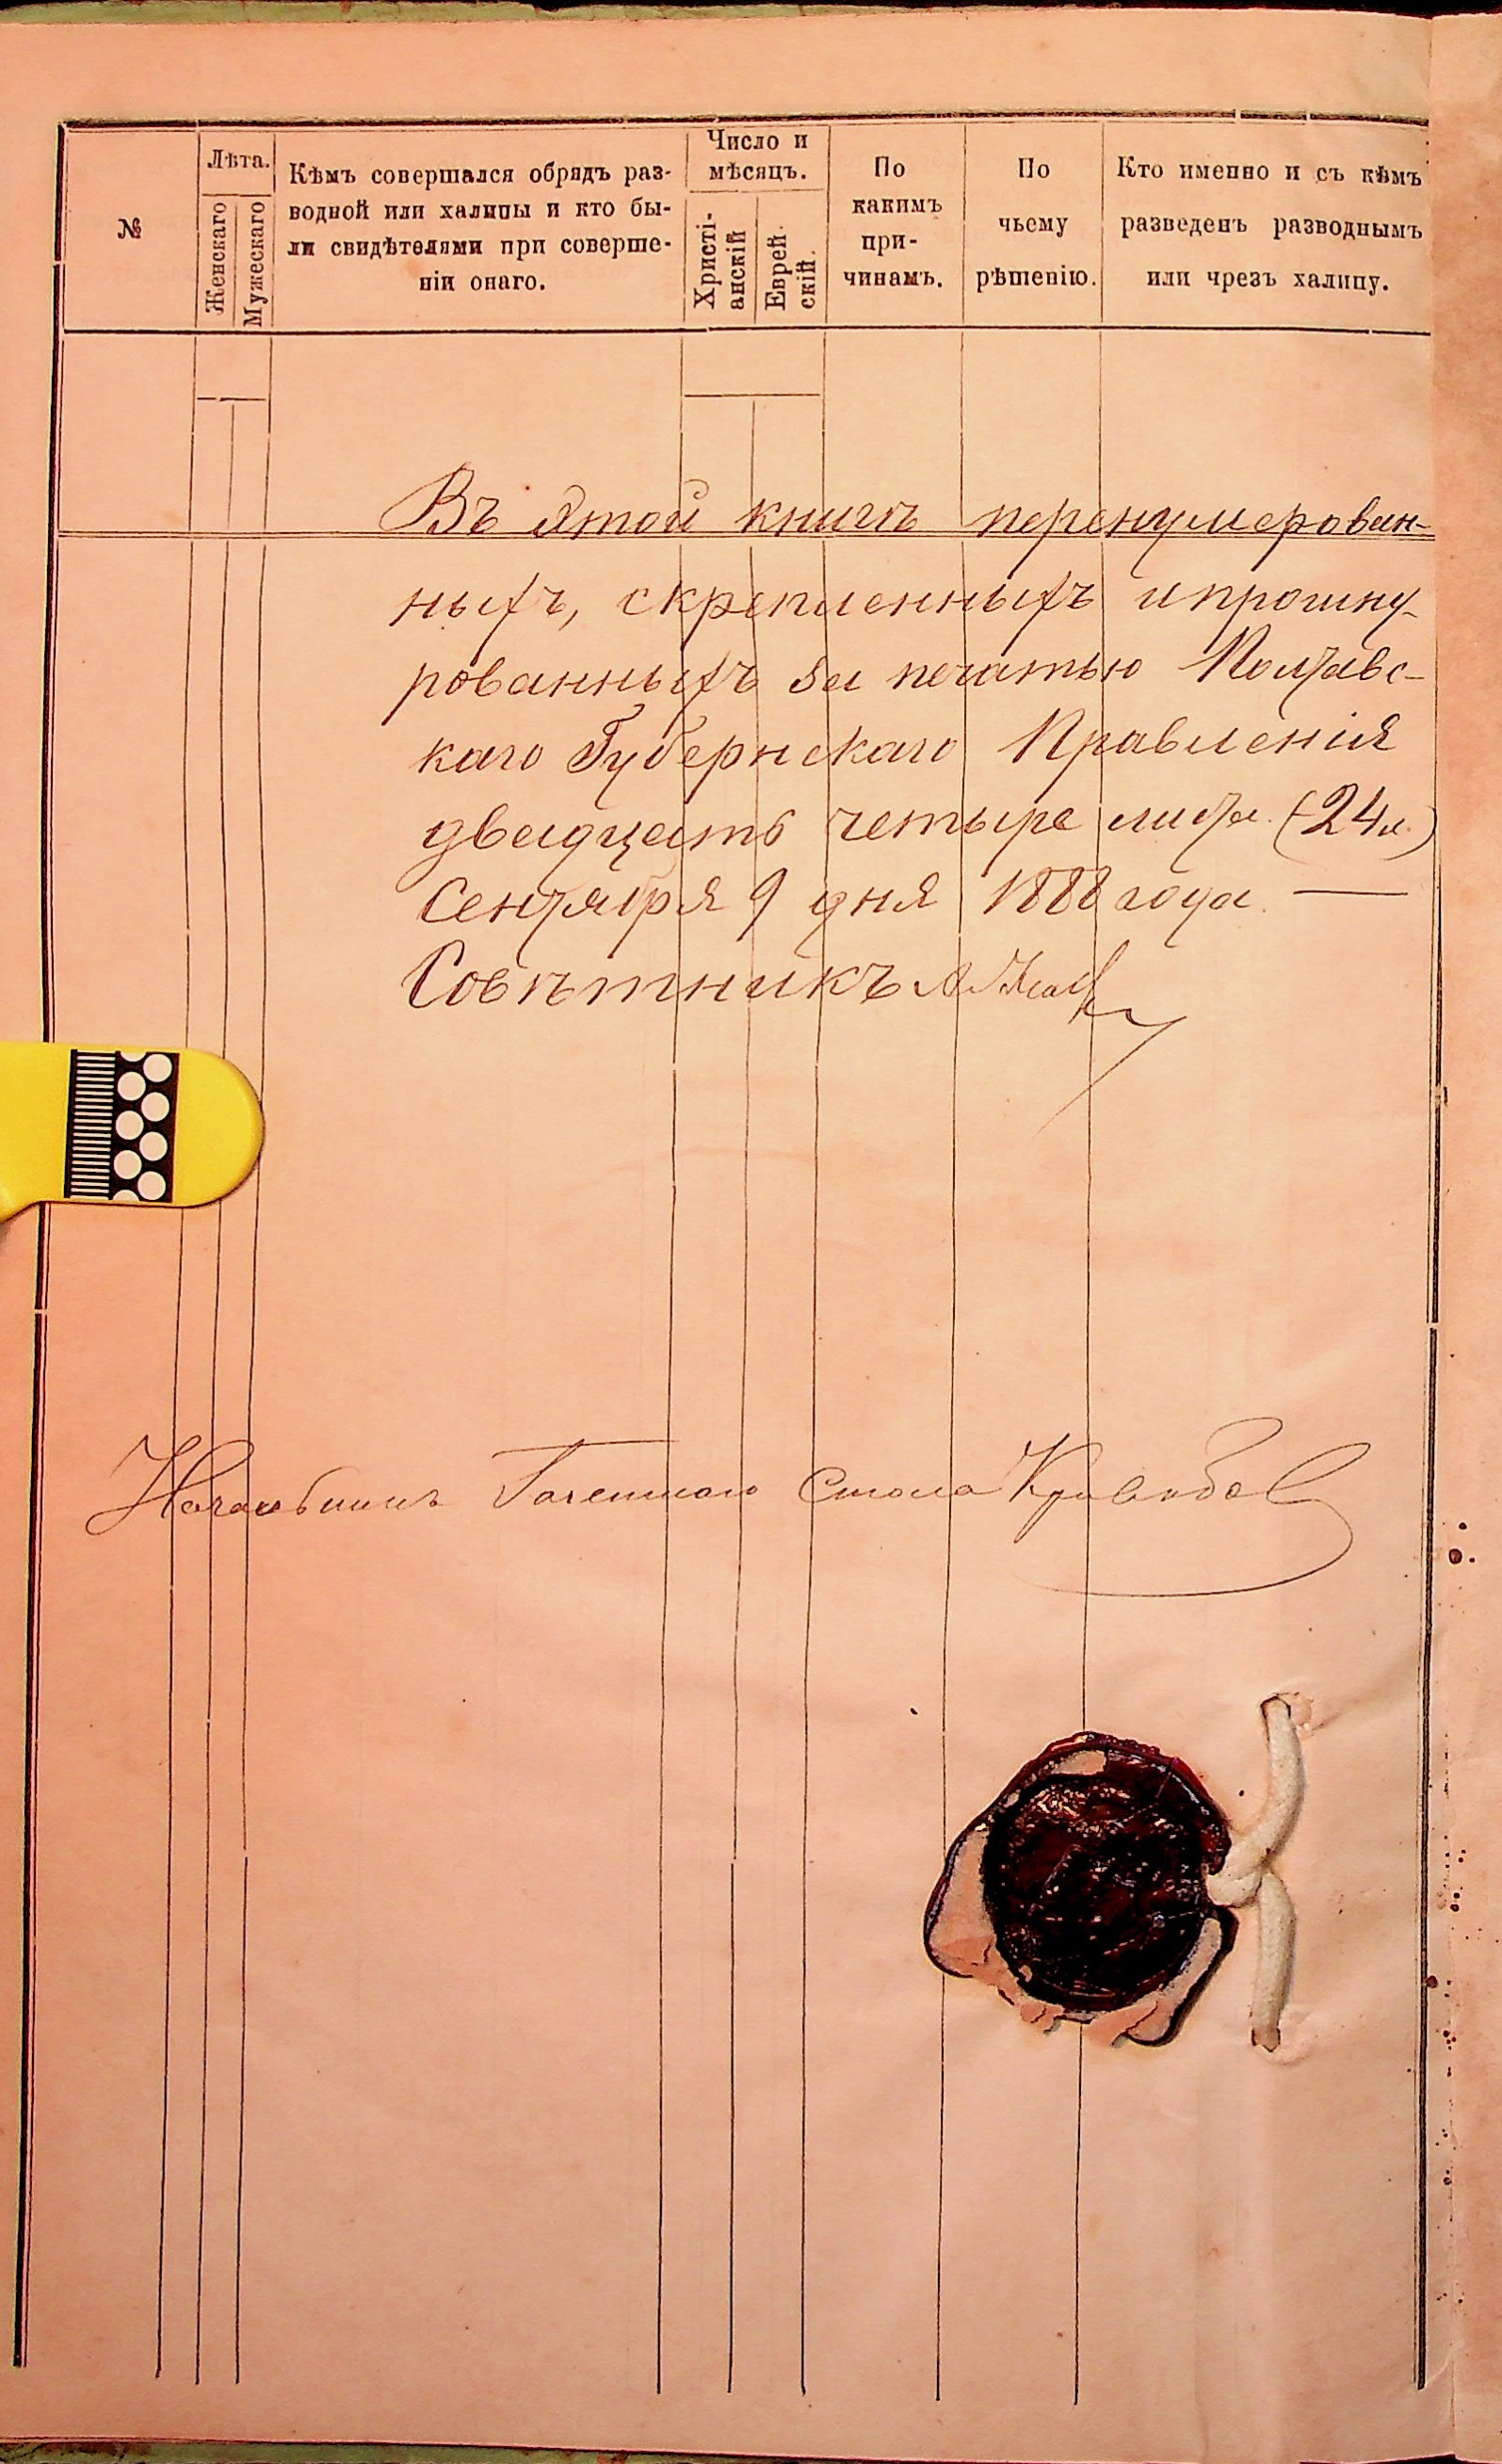 №
Лѣта.
Женскаго
Мужескаго
Кѣмъ совершался обрядъ раз-
водной или халицы и кто бы-
ли свидѣтелями при соверше-
ніи онаго.
Число и
мѣсяцъ.
Христі-
анскій
Еврей-
скій.
По
какимъ
при-
чинамъ.
По
чьему
рѣшенію.
Кто именно и съ кѣмъ
разведенъ разводнымъ
или чрезъ халицу.
Въ этой книгѣ перенумерован-
ныхъ, скрепленныхъ и прошну-
рованныхъ за печатью Полтавс-
каго Губернскаго Правленія
двадцать четыре листа (24 л.)
Сентября 9 дня 1888 года. —
Совѣтникъ
Начальникъ Газетнаго Стола